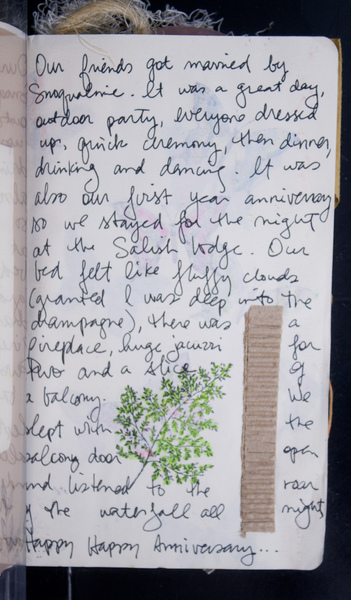 Our friends got married by
Snoqualmie. It was a great day,
outdoor party, everyone dressed
up, quick ceremony, then dinner,
drinking and dancing. It was
also our first year anniversary
so we stayed for the night
at the Salish lodge. Our
bed felt like fluffy clouds
(granted I was deep into the
champagne), there was a
fireplace, huge jacuzzi for
two and a slice of
a balcony. We
slept with the
balcony door open
and listened to the roar
of the waterfall all night,
Happy Happy Anniversary...